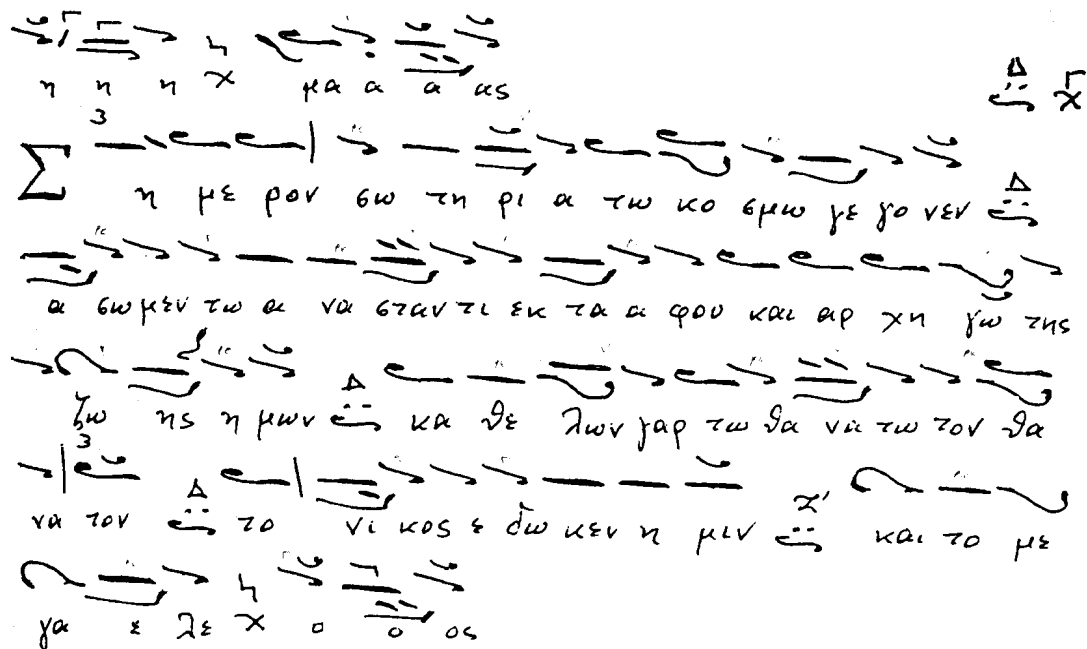 η η η χ μα α α ας
Δ χ
Ση με ρον σω τη ρι α τω κο σμω γε γο νεν Δ
α σωμεν τω α να σταν τι εκ τα α φου και αρ χη γω της
ζω ης η μων Δ κα θε λων γαρ τω θα να τω τον θα
να τον Δ το νι κος ε δω κεν η μιν Ζ' και το με
γα ε λε χ ο ο ος